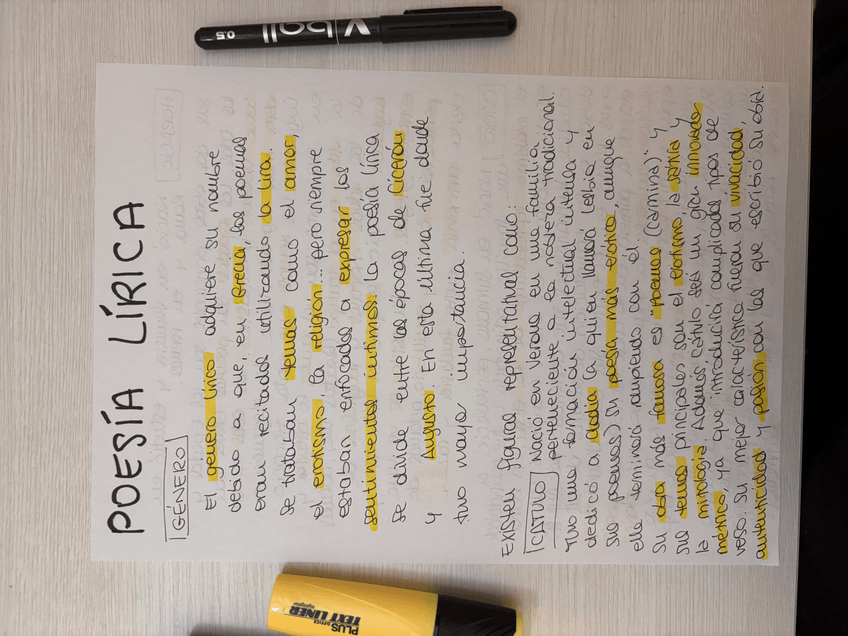 POESÍA LÍRICA
GÉNERO
El género lírico adquiere su nombre
debido a que, en Grecia, los poemas
eran recitados utilizando la lira.
Se trataban temas como el amor,
el erotismo, la religión... pero siempre
estaban enfocados a expresar los
sentimientos íntimos. La poesía lírica
se divide entre las épocas de Cicerón
y Augusto. En esta última fue donde
tuvo mayor importancia.
Existen figuras representativas como:
CATULO Nació en Verona en una familia
perteneciente a la nobleza tradicional.
Tuvo una formación intelectual intensa y
dedicó a Clodia (a quien llamará Lesbia en
sus poemas) su poesía más erótica, aunque
ella terminará rompiendo con él.
Su obra más famosa es "poemas (carmina)" y
sus temas principales son el erotismo, la sátira y
la mitología. Además, Catulo será un gran innovador
métrico, ya que introducirá complicados tipos de
verso. Su mejor característica fueron su vivacidad,
autenticidad y pasión con las que escribió su obra.
V ball
0.5
PLUS OFFICE
TEXT LINER